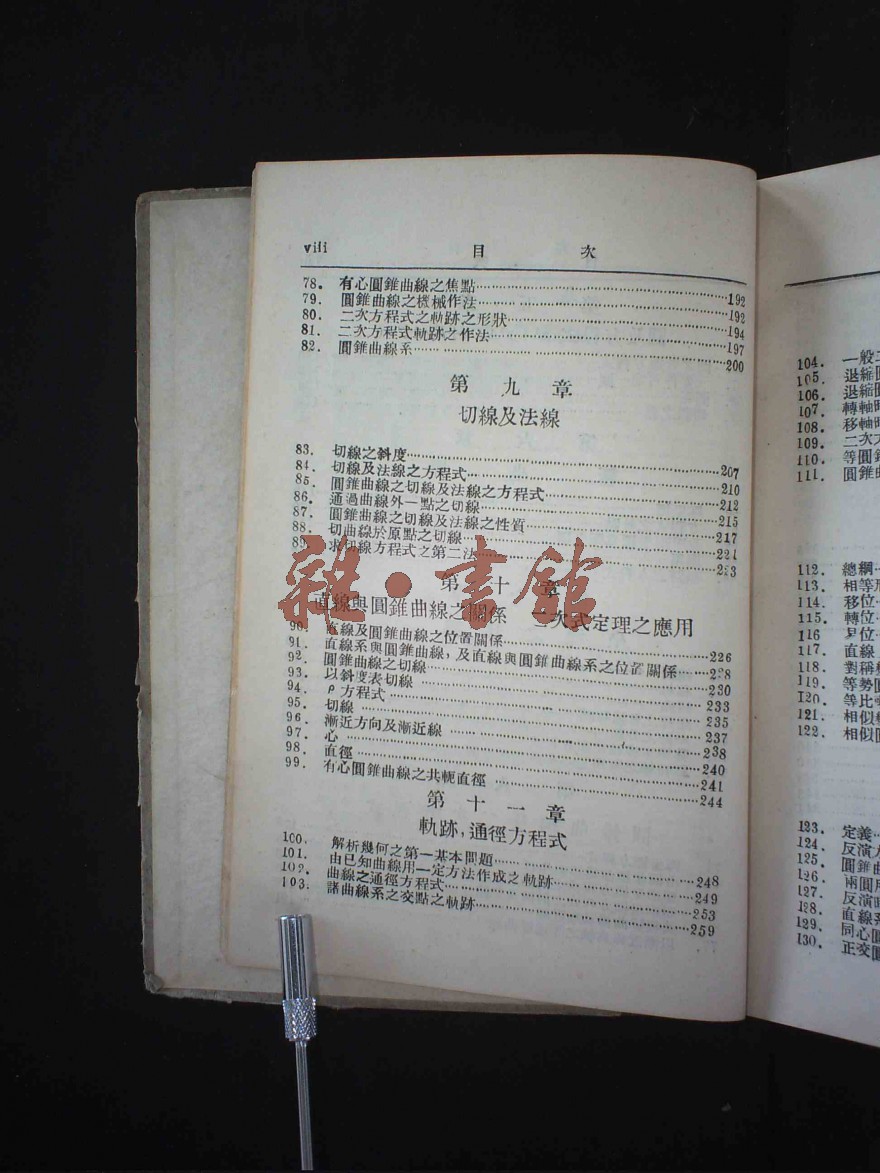 viii 目 次
78. 有心圓錐曲線之焦點 192
79. 圓錐曲線之機械作法 192
80. 二次方程式之軌跡之形狀 194
81. 二次方程式軌跡之作法 197
82. 圓錐曲線系 200
第 九 章
切線及法線
83. 切線之斜度 207
84. 切線及法線之方程式 210
85. 圓錐曲線之切線及法線之方程式 212
86. 通過曲線外一點之切線 215
87. 圓錐曲線之切線及法線之性質 217
88. 切曲線於原點之切線 221
89. 求切線方程式之第二法 223
雜·書館
第 十 章
直線與圓錐曲線之關係 二次式定理之應用
90. 直線及圓錐曲線之位置關係 226
91. 直線系與圓錐曲線,及直線與圓錐曲線系之位置關係 228
92. 圓錐曲線之切線 230
93. 以斜度表切線 233
94. ρ方程式 235
95. 切線 237
96. 漸近方向及漸近線 238
97. 心 240
98. 直徑 241
99. 有心圓錐曲線之共軛直徑 244
第 十 一 章
軌跡,通徑方程式
100. 解析幾何之第一基本問題 248
101. 由已知曲線用一定方法作成之軌跡 249
102. 曲線之通徑方程式 253
103. 諸曲線系之交點之軌跡 259
104. 一般二
105. 退縮圓
106. 退縮圓
107. 轉軸時
108. 移軸時
109. 二次方
110. 等圓錐
111. 圓錐曲
112. 總綱
113. 相等形
114. 移位
115. 轉位
116
117. 直線
118. 對稱
119. 等勢圓
120. 等比
121. 相似
122. 相似圓
123. 定義
124. 反演
125. 圓錐曲
126. 兩圓
127. 反演
128. 直線系
129. 同心圓
130. 正交圓